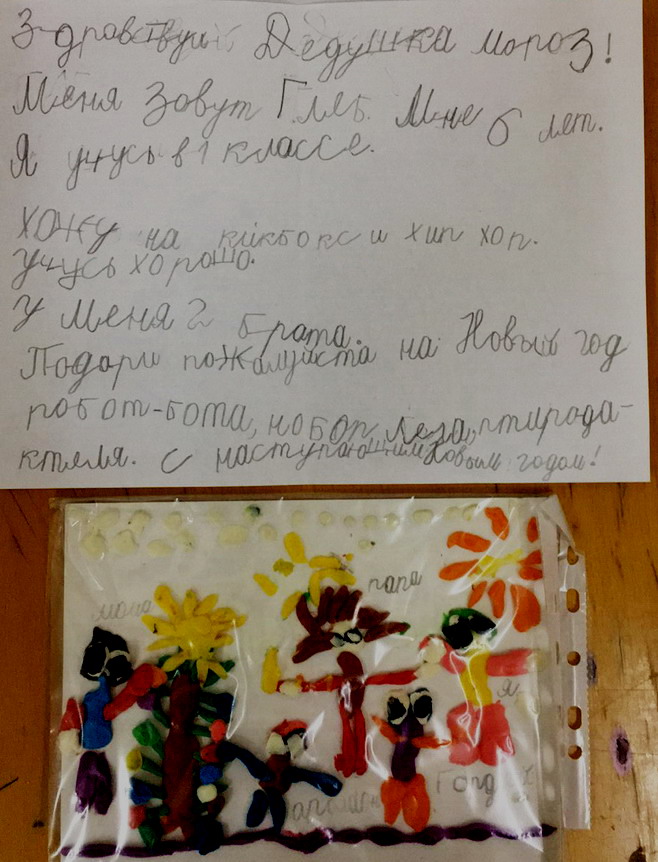 Здравствуй Дедушка мороз!
Меня Зовут Глеб. Мне 6 лет.
Я учусь в 1 классе.
хожу на кикбокс и хип хоп.
учусь хорошо.
у меня 2 брата.
Подари пожалуйста на Новый год
робот-бота, нобор Леза, птирода-
ктеля. с наступающим Новым годом!
папа
мама
я